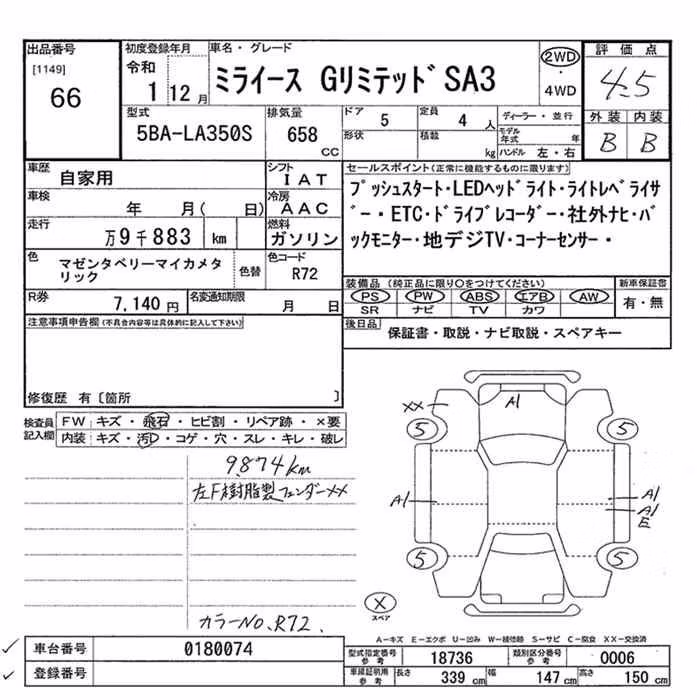 出品番号
[1149]
66
初度登録年月
令和
1 12 月
車名・グレード
ミライース Gリミテッド SA3
2WD
・
4WD
評価点
4.5
外装 内装
B B
型式
5BA-LA350S
排気量
658
CC
ドア
5
定員
4 人
形状
積載
kg
ディーラー・並行
モデル
年式 年
ハンドル 左・右
車歴
自家用
シフト
IAT
車検
年 月( 日)
冷房
AAC
走行
万9千883 km
燃料
ガソリン
色
マゼンタベリーマイカメタ
リック
色替
色コード
R72
R券
7,140 円
名変通知期限
月 日
セールスポイント(正常に機能するものに限ります)
プッシュスタート・LEDヘッドライト・ライトレベライサ
ー・ETC・ドライブレコーダー・社外ナビ・バ
ックモニター・地デジTV・コーナーセンサー・
装備品 (純正品に限り○をつけてください)
PS PW ABS エアB AW
SR ナビ TV カワ
新車保証書
有・無
後日品
保証書・取説・ナビ取説・スペアキー
注意事項申告欄(不具合内容等は具体的に記入して下さい)
修復歴 有〔箇所 〕
検査員
記入欄
FW キズ・飛石・ヒビ割・リペア跡・×要
内装 キズ・汚レ・コゲ・穴・スレ・キレ・破レ
9,874km
左F樹脂製フェンダーXX
カラーNo,R72.
XX
A1
5 5
A1
A1
A1
E
5 5
X
スペア
A-キズ E-エクボ U-凹み W-補修跡 S-サビ C-腐食 XX-交換済
車台番号
0180074
登録番号
型式指定番号
参考
18736
類別区分番号
参考
0006
車検証明用
参考
長さ
339 cm
幅
147 cm
高さ
150 cm